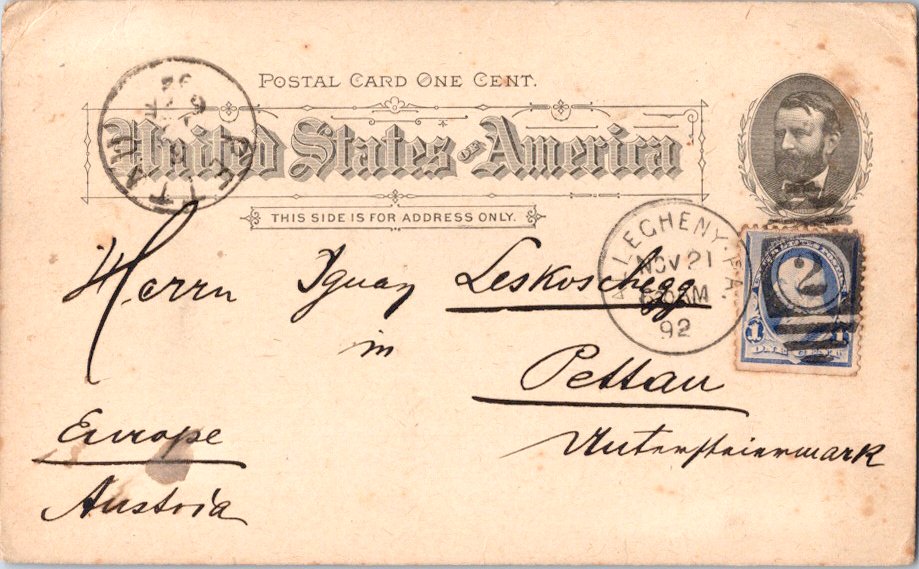 POSTAL CARD ONE CENT.
United States of America
THIS SIDE IS FOR ADDRESS ONLY.
PETTAU
92
ALLEGHENY, PA.
NOV 21
AM
92
2
1 1
ONE CENT
Herrn Ignaz Leskoschegg
in
Pettau
Untersteiermark
Europe
Austria